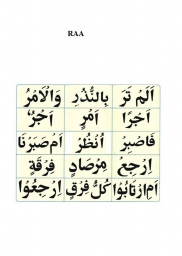 RAA
اَلَمْ تَرَ بِالنُّذُرِ وَالْاَمْرُ
اَجْرًا اَمْرٍ اَجْرٌ
فَاصْبِرْ اُنْظُرْ اَمْ صَبَرْنَا
اِرْجِعْ مِرْصَادٍ فِرْقَةٍ
اَمِ ارْتَابُوْا كُلُّ فِرْقٍ اِرْجِعُوْا